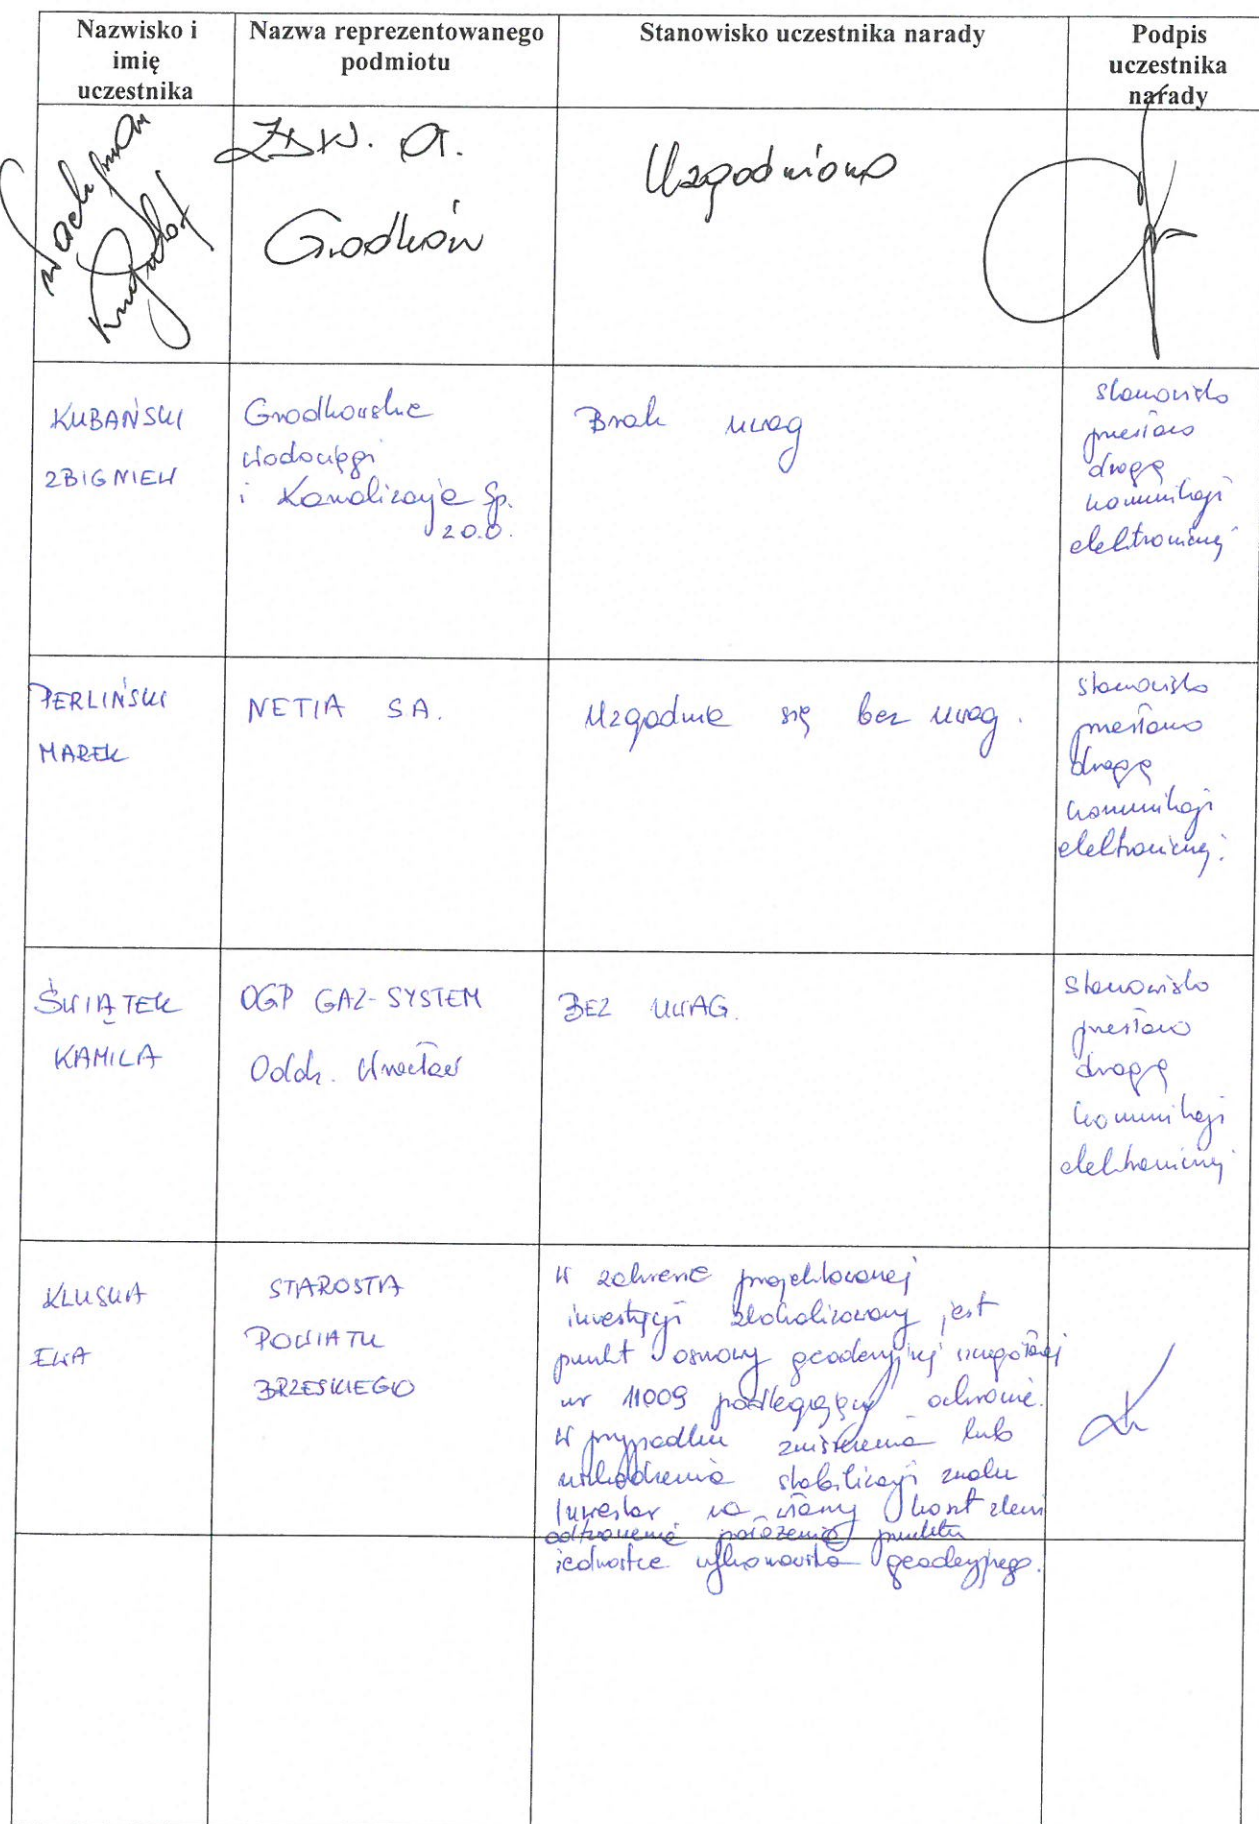 Nazwisko i
imię
uczestnika
Nazwa reprezentowanego
podmiotu
Stanowisko uczestnika narady
Podpis
uczestnika
narady
Grodków
Uzgodniono
KUBAŃSKI
ZBIGNIEW
Grodkowskie
Wodociągi
i Kanalizacja Sp.
z o.o.
Brak uwag
stanowisko
przesłano
drogą
komunikacji
elektronicznej
PERLIŃSKI
MAREK
NETIA S.A.
Uzgadnia się bez uwag.
stanowisko
przesłano
drogą
komunikacji
elektronicznej.
ŚWIĄTEK
KAMILA
OGP GAZ-SYSTEM
Oddz. Wrocław
BEZ UWAG.
stanowisko
przesłano
drogą
komunikacji
elektronicznej
KLUSKA
EWA
STAROSTA
POWIATU
BRZESKIEGO
W zakresie projektowanej
inwestycji zlokalizowany jest
punkt osnowy geodezyjnej szczegółowej
nr 11009 podlegający ochronie.
W przypadku zniszczenia lub
uszkodzenia stabilizacji znaku
Inwestor na własny koszt zleci
odtworzenie położenia punktu
jednostce wykonawstwa geodezyjnego.